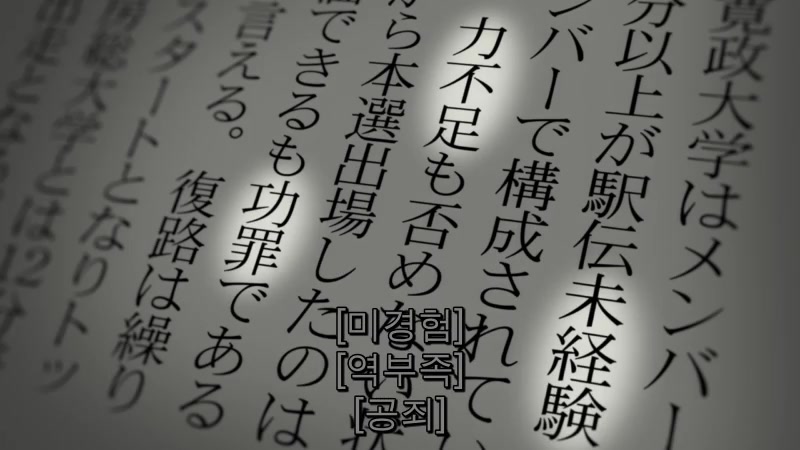 寛政大学はメンバー
分以上が駅伝未経験
ンバーで構成されてい
力不足も否めな
から本選出場したのは
できるも功罪である
言える。 復路は繰り
スタートとなりトッ
房総大学とは12分
[미경험]
[역부족]
[공죄]